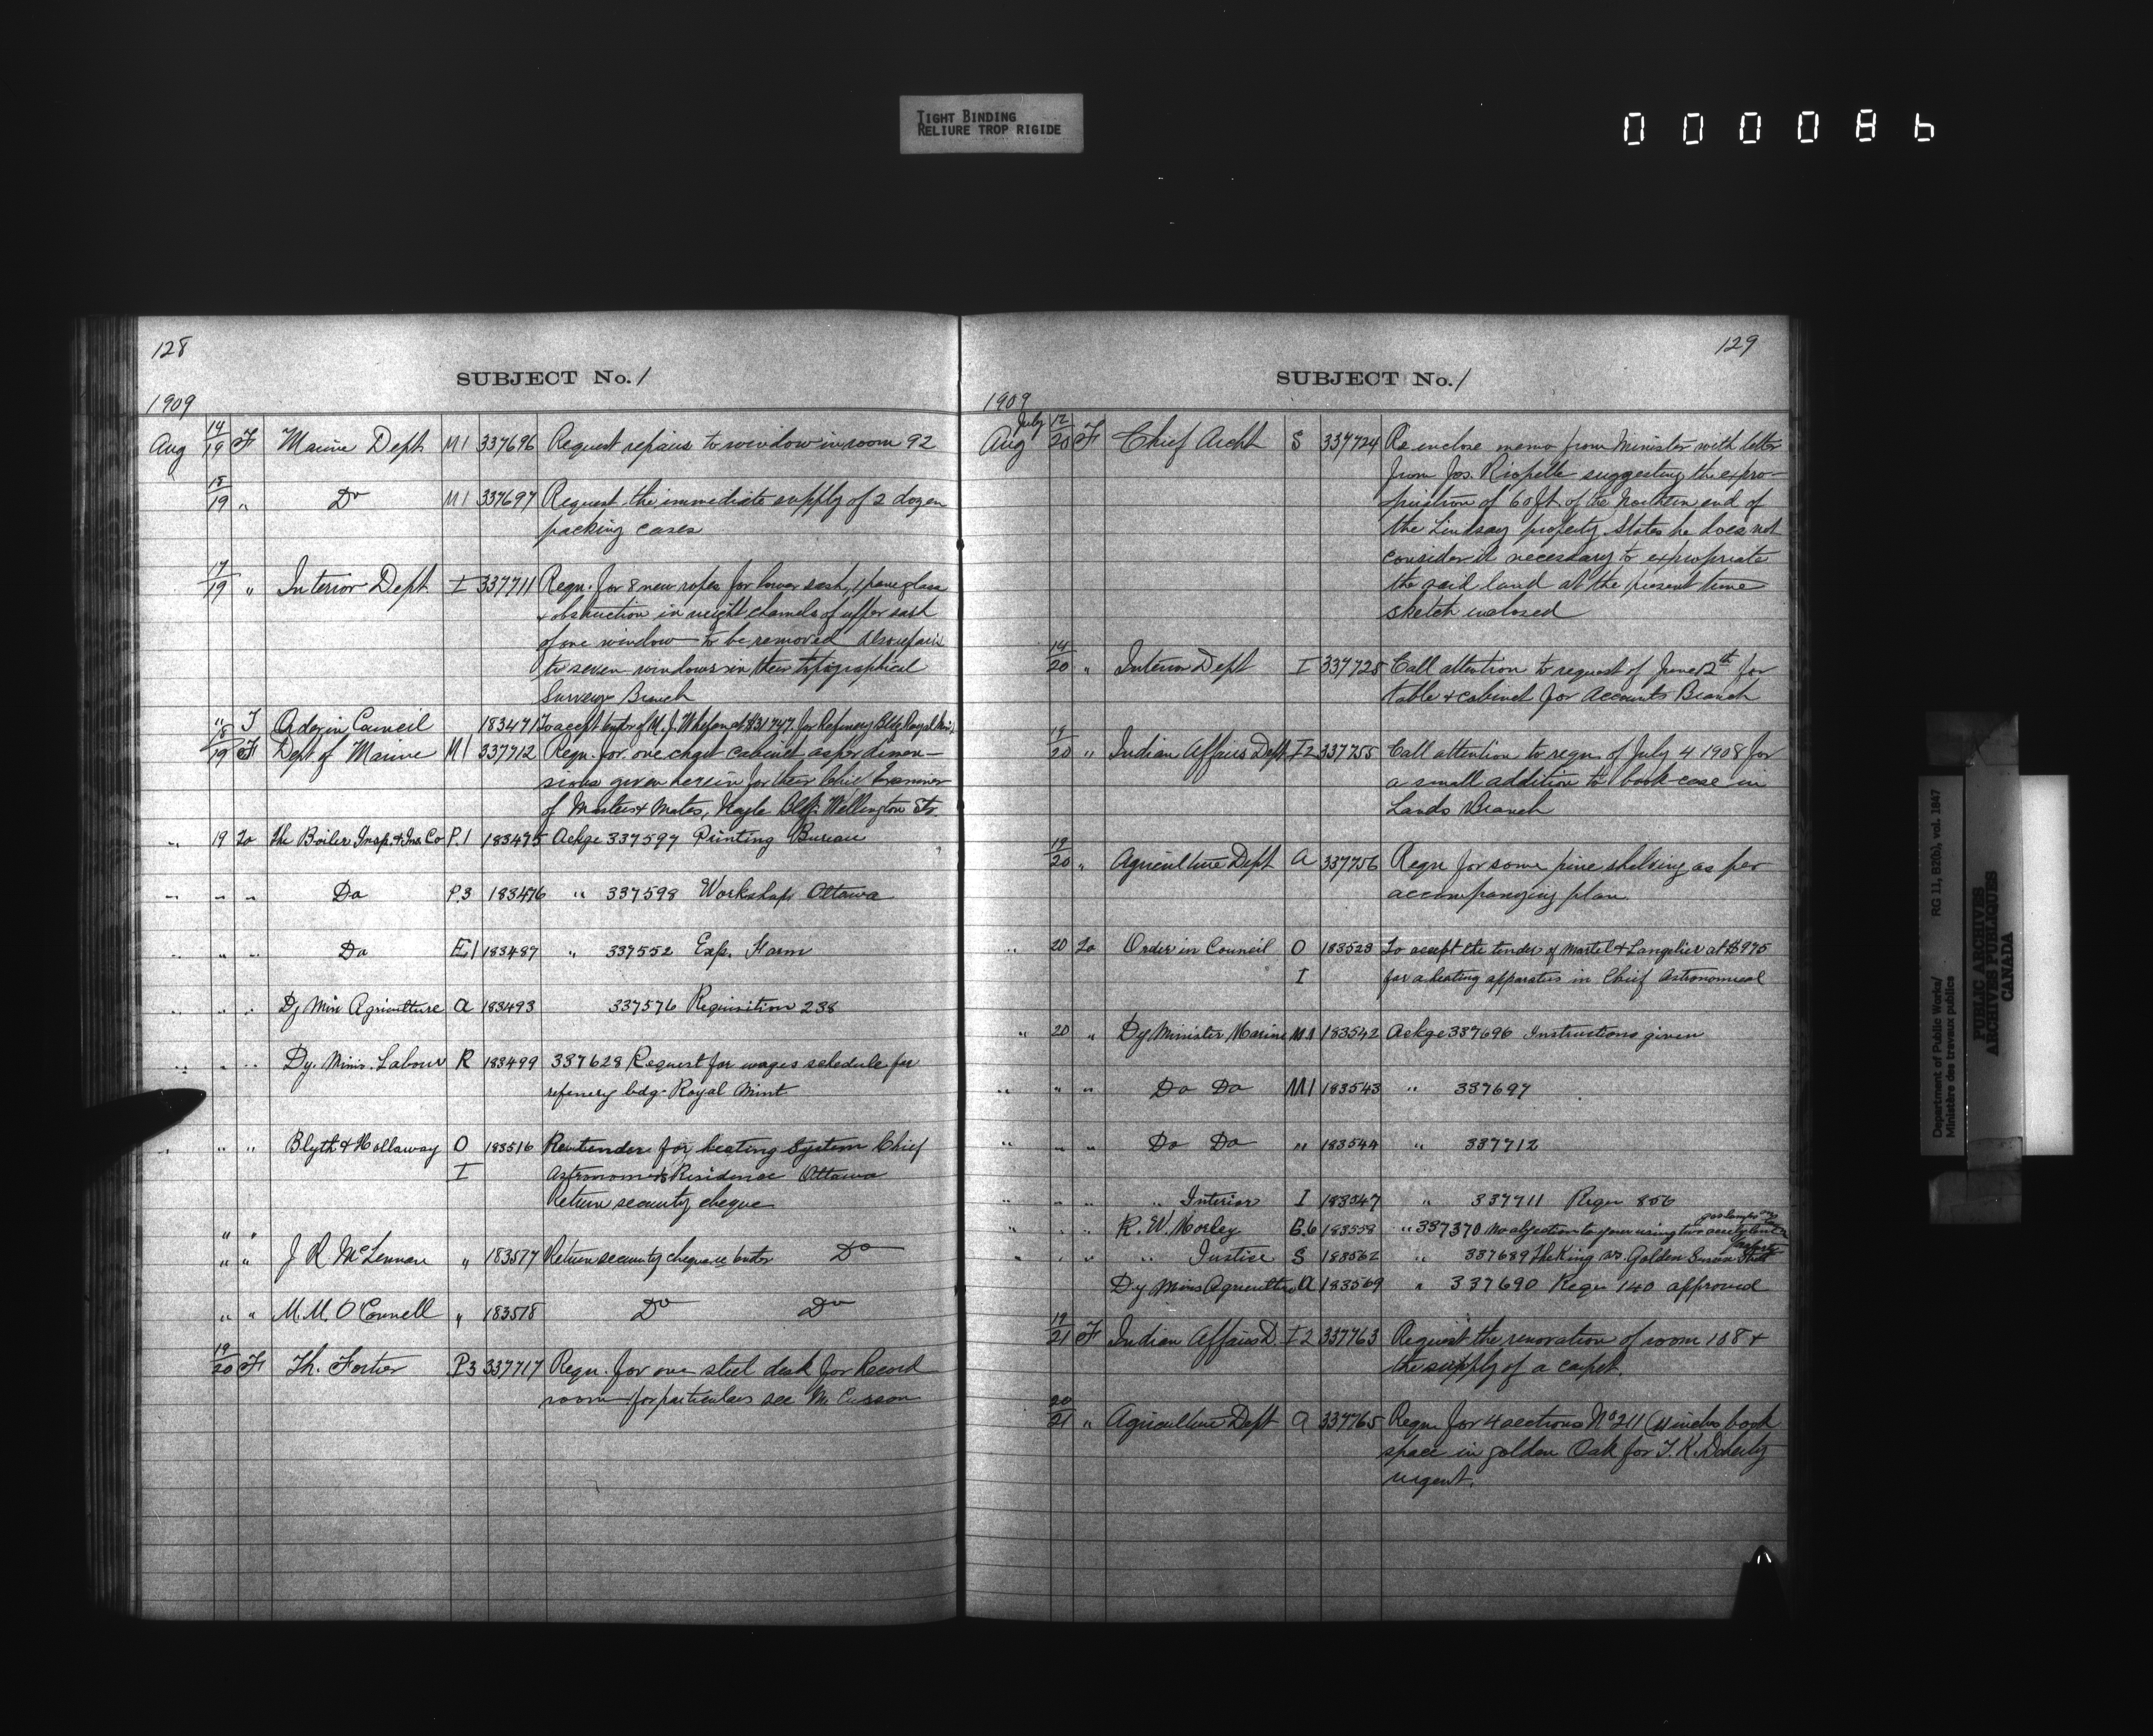 TIGHT BINDING
RELIURE TROP RIGIDE
000086
128
SUBJECT No. 1
1909
Aug 14/19 F Marine Dept M1 337696 Request repairs to window in room 92
15/19 " Do M1 337697 Request the immediate supply of 2 dozen
packing cases
17/19 " Interior Dept I 337711 Requ. for 8 new ropes for lower sash, 1 pane glass
& obstruction in weight channels of upper sash
of one window to be removed Also repairs
to seven windows in their topographical
Surveys Branch
" T Order in Council 183471 To accept tender of M. J. Whelan at $31747. for Refinery Bldg Royal Mint
18/19 F Dept of Marine M1 337712 Requ. for one chart cabinet as per dimen-
sions given herein for their Chief Examiner
of Masters & Mates, Wellington St.
" 19 To The Boiler Insp. & Ins. Co P.1 183475 Ackge 337597 Printing Bureau
" " " Do P.3 183476 " 337598 Workshops Ottawa
" " " Do E1 183487 " 337552 Exp. Farm
" " " Dy Min Agriculture A 183493 337576 Requisition 238
" " " Dy. Minis. Labour R 183499 337628 Request for wages schedule for
refinery bdg. Royal Mint
" " " Blyth & Hollaway O 183516 Re tender for heating system Chief
I Astronomer's Residence Ottawa
Return security cheque
" "
" " J R McLennan " 183577 Return security cheque re tender Do
" " M. M. O'Connell " 183518 Do Do
19/20 F Th. Fortier P3 337717 Requ. for one steel desk for Record
room for particulars see Mr
129
SUBJECT No. 1
1909
July
Aug 12/20 F Chief Archt S 337724 Re inclose memo from Minister with letter
from Jos. Riopelle suggesting the expro-
priation of 60 ft. of the Northern end of
the Lindsay property. States he does not
consider it necessary to expropriate
the said land at the present time
sketch inclosed
14/20 " Interior Dept I 337725 Call attention to request of June 12th for
table & cabinet for Accounts Branch
19/20 " Indian Affairs Dept I2 337755 Call attention to requ. of July 4 1908 for
a small addition to book-case in
Lands Branch
19/20 " Agriculture Dept A 337756 Requ for some pine shelving as per
accompanying plan
" 20 To Order in Council O 183523 To accept the tender of Martel & Langelier at $975
I for a heating apparatus in Chief Astronomical
" 20 " Dy Minister Marine M1 183542 Ackge 337696 Instructions given
" " " Do Do M1 183543 " 337697
" " " Do Do " 183544 " 337712
" " " " Interior I 183547 " 337711 Requ 856
" " " R. W. Morley B.6 183558 " 337370 No objection to your using two
" " " " Justice S 183562 " 337689 The King vs. Golden
Dy Minis Agriculture A 183569 " 337690 Requ 140 approved
19/21 F Indian Affairs D. I2 337763 Request the renovation of room 108 &
the supply of a carpet.
20/21 " Agriculture Dept A 337765 Requ. for 4 sections No 211 (11 inches book
space in golden Oak for T. K. Doherty
urgent.
Department of Public Works/
Ministère des travaux publics
RG 11, B2(b), vol. 1847
PUBLIC ARCHIVES
ARCHIVES PUBLIQUES
CANADA